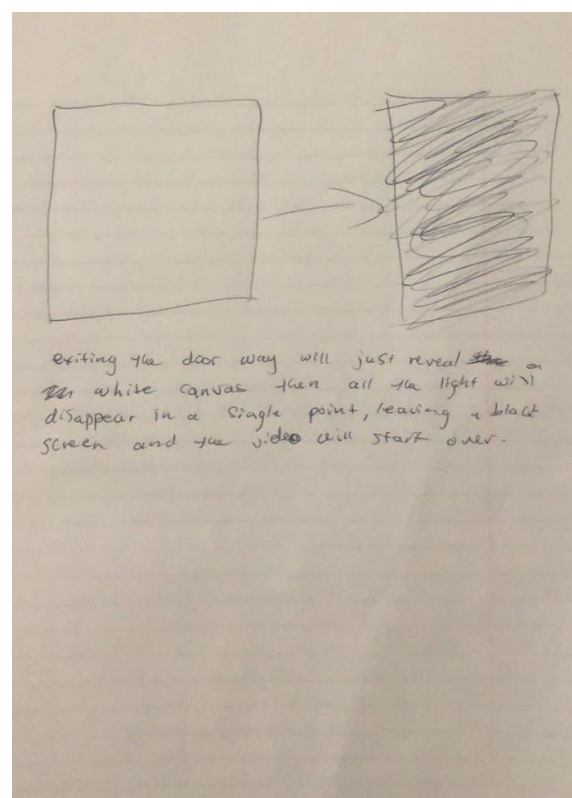 exiting the door way will just reveal a
white canvas then all the light will
disappear in a single point, leaving a black
screen and the video will start over.